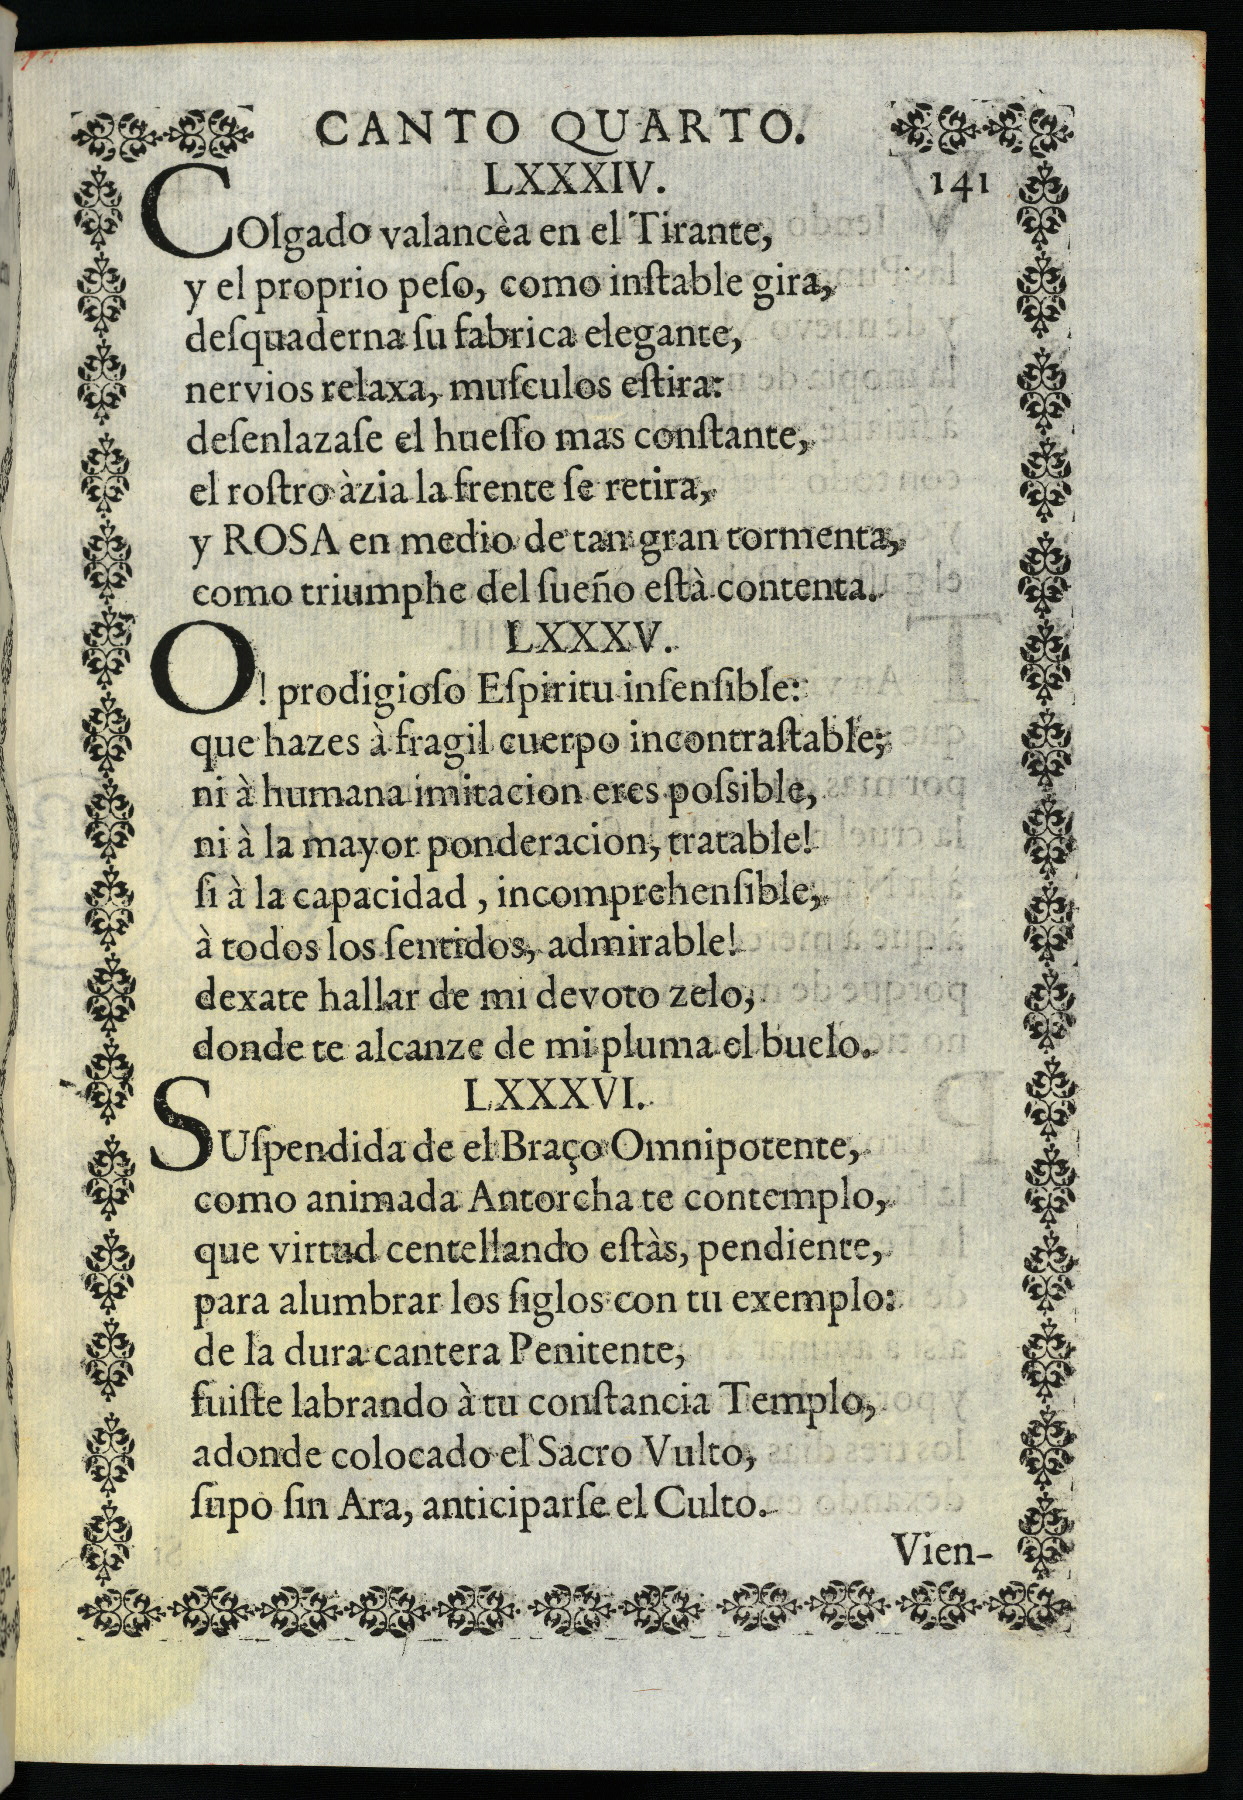 CANTO QUARTO.
LXXXIV.
141
COlgado valancèa en el Tirante,
y el proprio peſo, como inſtable gira,
deſquaderna ſu fabrica elegante,
nervios relaxa, muſculos eſtira:
deſenlazaſe el hueſſo mas conſtante,
el roſtro àzia la frente ſe retira,
y ROSA en medio de tan gran tormenta,
como triumphe del ſueño eſtà contenta.
LXXXV.
O! prodigioſo Eſpiritu inſenſible:
que hazes à fragil cuerpo incontraſtable;
ni à humana imitacion eres poſsible,
ni à la mayor ponderacion, tratable!
ſi à la capacidad, incomprehenſible,
à todos los ſentidos, admirable!
dexate hallar de mi devoto zelo,
donde te alcanze de mi pluma el buelo.
LXXXVI.
SUſpendida de el Braço Omnipotente,
como animada Antorcha te contemplo,
que virtud centellando eſtàs, pendiente,
para alumbrar los ſiglos con tu exemplo:
de la dura cantera Penitente,
fuiſte labrando à tu conſtancia Templo,
adonde colocado el Sacro Vulto,
ſupo ſin Ara, anticiparſe el Culto.
Vien-